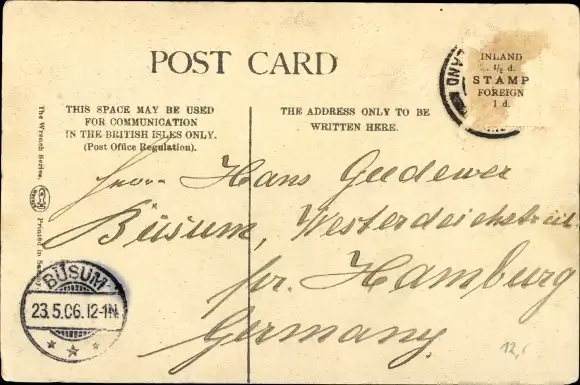 POST CARD
LAND
INLAND
½ d.
STAMP
FOREIGN
1 d.
THIS SPACE MAY BE USED
FOR COMMUNICATION
IN THE BRITISH ISLES ONLY.
(Post Office Regulation).
THE ADDRESS ONLY TO BE
WRITTEN HERE.
The Wrench Series.
Printed in
Herrn Hans
Büsum, Westerdeichstr
pr. Hamburg
Germany
BÜSUM
23.5.06.12-1N
12,